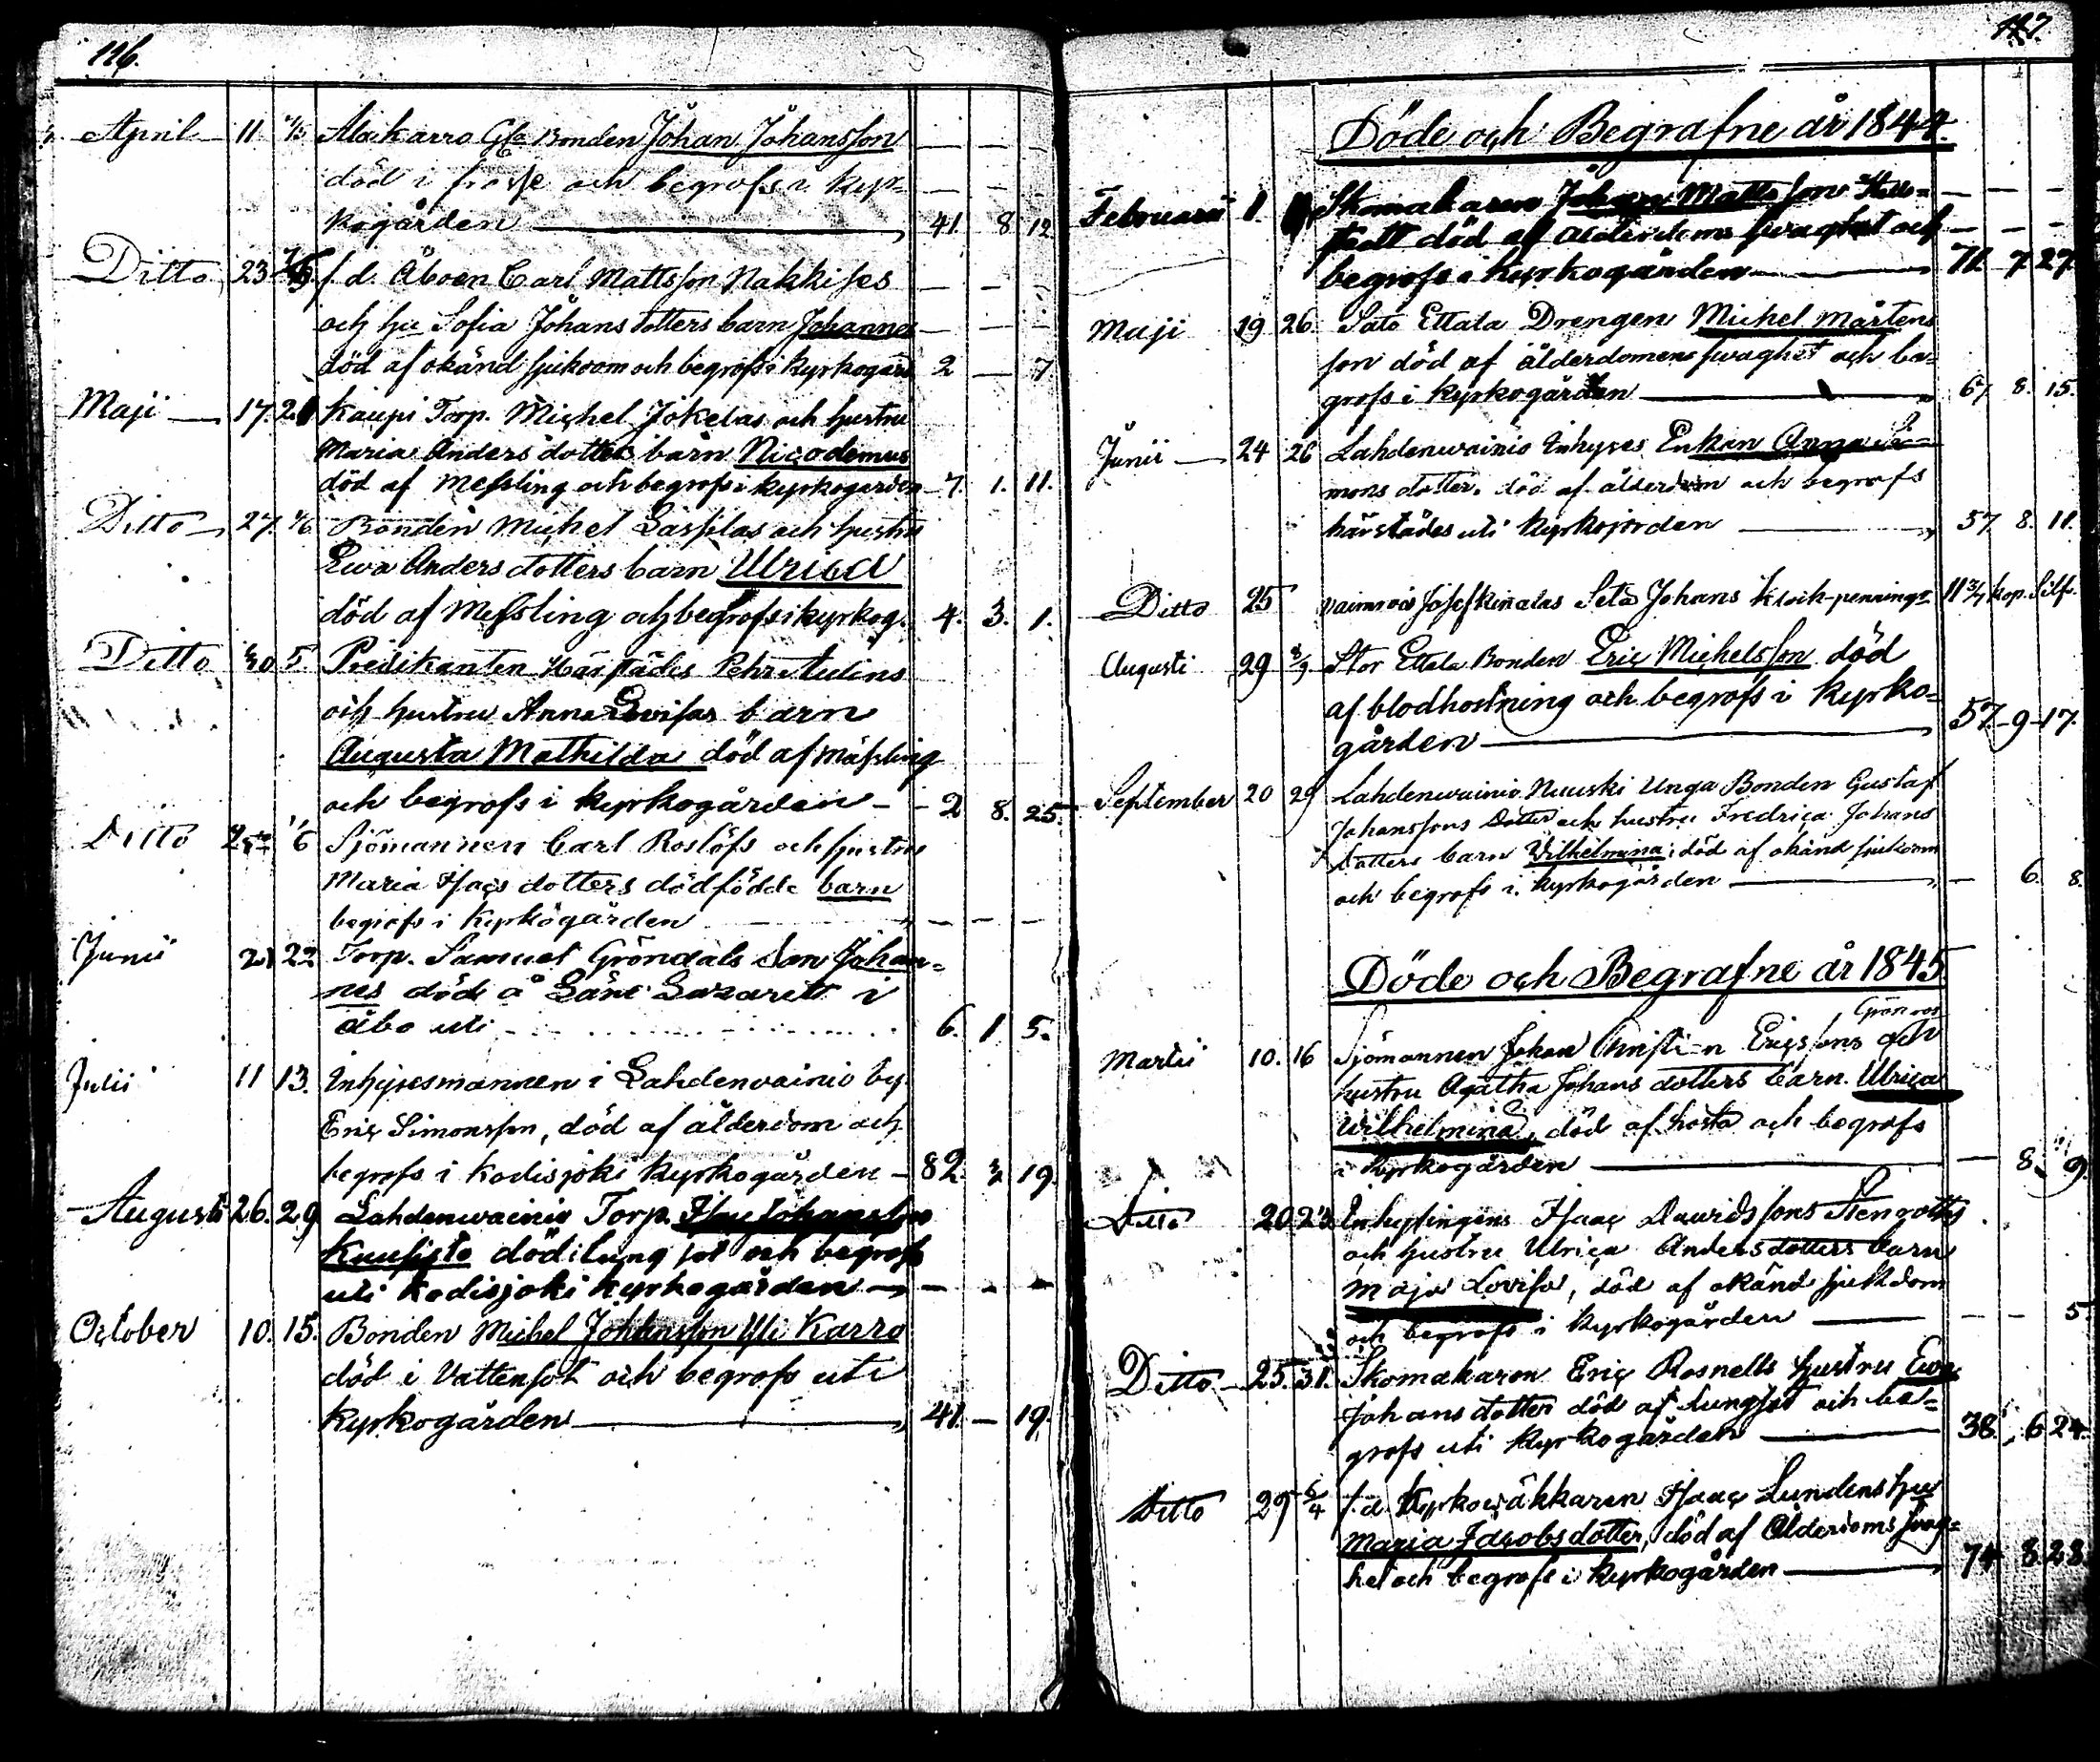 116.
April 11 Alakarro Bonden Johan Johansson
död i frosse och begrofs i kyr=
kogården 41. 8 12.
Ditto 23 f.d. Åboen Carl Mattsson Nakkises
och hu Sofia Johans dotters barn Johannes
död af okänd sjukdom och begrofs i kyrkogård 2 — 7
Maji 17. 21 Kaupi Torp. Michel Jokelas och hustru
Maria Anders dotters barn Nicodemus
död af Messling och begrofs i kyrkogården 7. 1. 11.
Ditto 27. 2/6 Bonden Michel och hustru
Ewa Anders dotters barn Ulrica
död af Messling och begrofs i kyrkog. 4. 3. 1.
Ditto 30 5 Predikanten Härstädes Pehr
och hustru Anna Lovisas barn
Augusta Mathilda död af Mässling
och begrofs i kyrkogården 2 8. 25.
Ditto 1/6 Sjömannen Carl Roslöfs och hustru
Maria Isacs dotters dödfödde barn
begrofs i kyrkogården — — —
Junii 21 22 Torp. Samuel Gröndals Son Johan=
nes död å Läns Lazarett i
Åbo uti 6. 1 5.
Julii 11 13. Inhysesmannen i Lahdenvainio by
Eric Simonsson, död af ålderdom och
begrofs i Kodisjoki kyrkogården 82. 19.
Augusti 26. 29 Lahdenwainio Torp. Isac Johansson
Kuusisto död i lung sot och begrofs
uti Kodisjoki kyrkogården — — —
October 10. 15. Bonden Michel Johansson Uti Karro
död i Vattensot och begrofs uti
kyrkogården 41. — 19.
117.
Döde och Begrafne år 1844.
Februarii 1. Skomakaren Johan Mattsson
död af ålderdoms svaghet och
begrofs i kyrkogården 71 7 27.
Maji 19 26. Sato Ettala Drengen Michel Mårtens
son död af ålderdomens swaghet och be=
grofs i kyrkogården 67 8. 15.
Junii 24 26 Lahdenwainio Inhyses Enkan Anna Si=
mons dotter. död af ålderdom och begrofs
härstädes uti kyrkojorden 57 8. 11.
Ditto 25 Johans Klock-pennings 11 3/7 kop. Silf.
Augusti 29 8/9 Stor Ettala Bonden Eric Michelsson död
af blodhostning och begrofs i kyrko=
gården 57. 9 17.
September 20 29 Lahdenwainio Nuuski Unga Bonden Gustaf
Johanssons Dotter och hustru Fredrica Johans
dotters barn Wilhelmina, död af okänd sjukdom
och begrofs i kyrkogården — 6. 8.
Döde och Begrafne år 1845
Grönroos
Martii 10. 16 Sjömannen Johan Christian Ericssons och
hustru Agatha Johans dotters barn. Ulrica
Wilhelmina, död af hosta och begrofs
i kyrkogården — 8. 9.
Ditto 20 23. Inhysingens Isaac Dawidssons Stengotts
och hustru Ulrica Anders dotters barn
Maja Lovisa, död af okänd sjukdom
och begrofs i kyrkogården — — 5
Ditto 25. 31. Skomakaren Eric Rosnells hustru Ewa
Johans dotter död af lungsot och be=
grofs uti kyrkogården 38. 6 24.
Ditto 29 6/4 f.d. kyrkowäkkaren Isaac Lundens hu
Maria Jacobs dotter, död af Ålderdoms swag=
het och begrofs i kyrkogården 74 8 28.